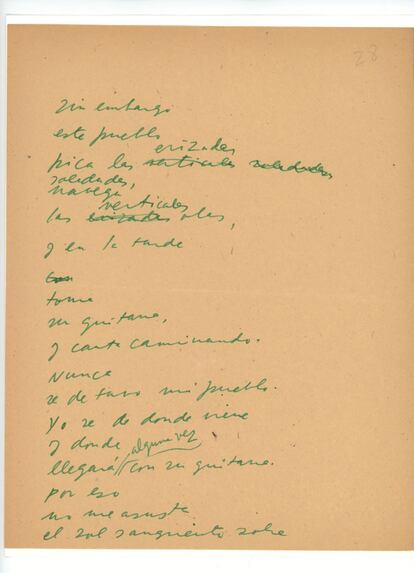 28
Sin embargo
este pueblo
erizadas
pica las verticales soledades
soledades,
navega
verticales
las erizadas olas,
y en la tarde
toma
su guitarra,
y canta caminando.
Nunca
se detuvo mi pueblo.
Yo se de donde viene
y donde alguna vez
llegará con su guitarra.
por eso
no me asusta
el sol sangriento sobre